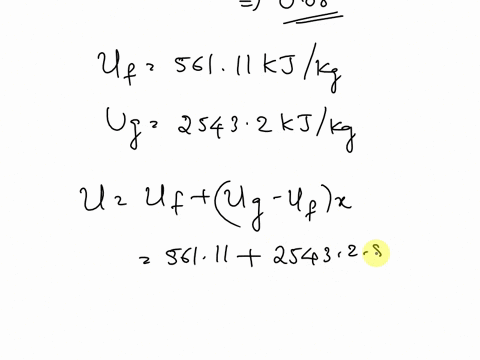 =)
U_f = 561.11 KJ/kg
U_g = 2543.2 KJ/kg
U = U_f + (U_g - U_f)x
= 561.11 + 2543.2 -